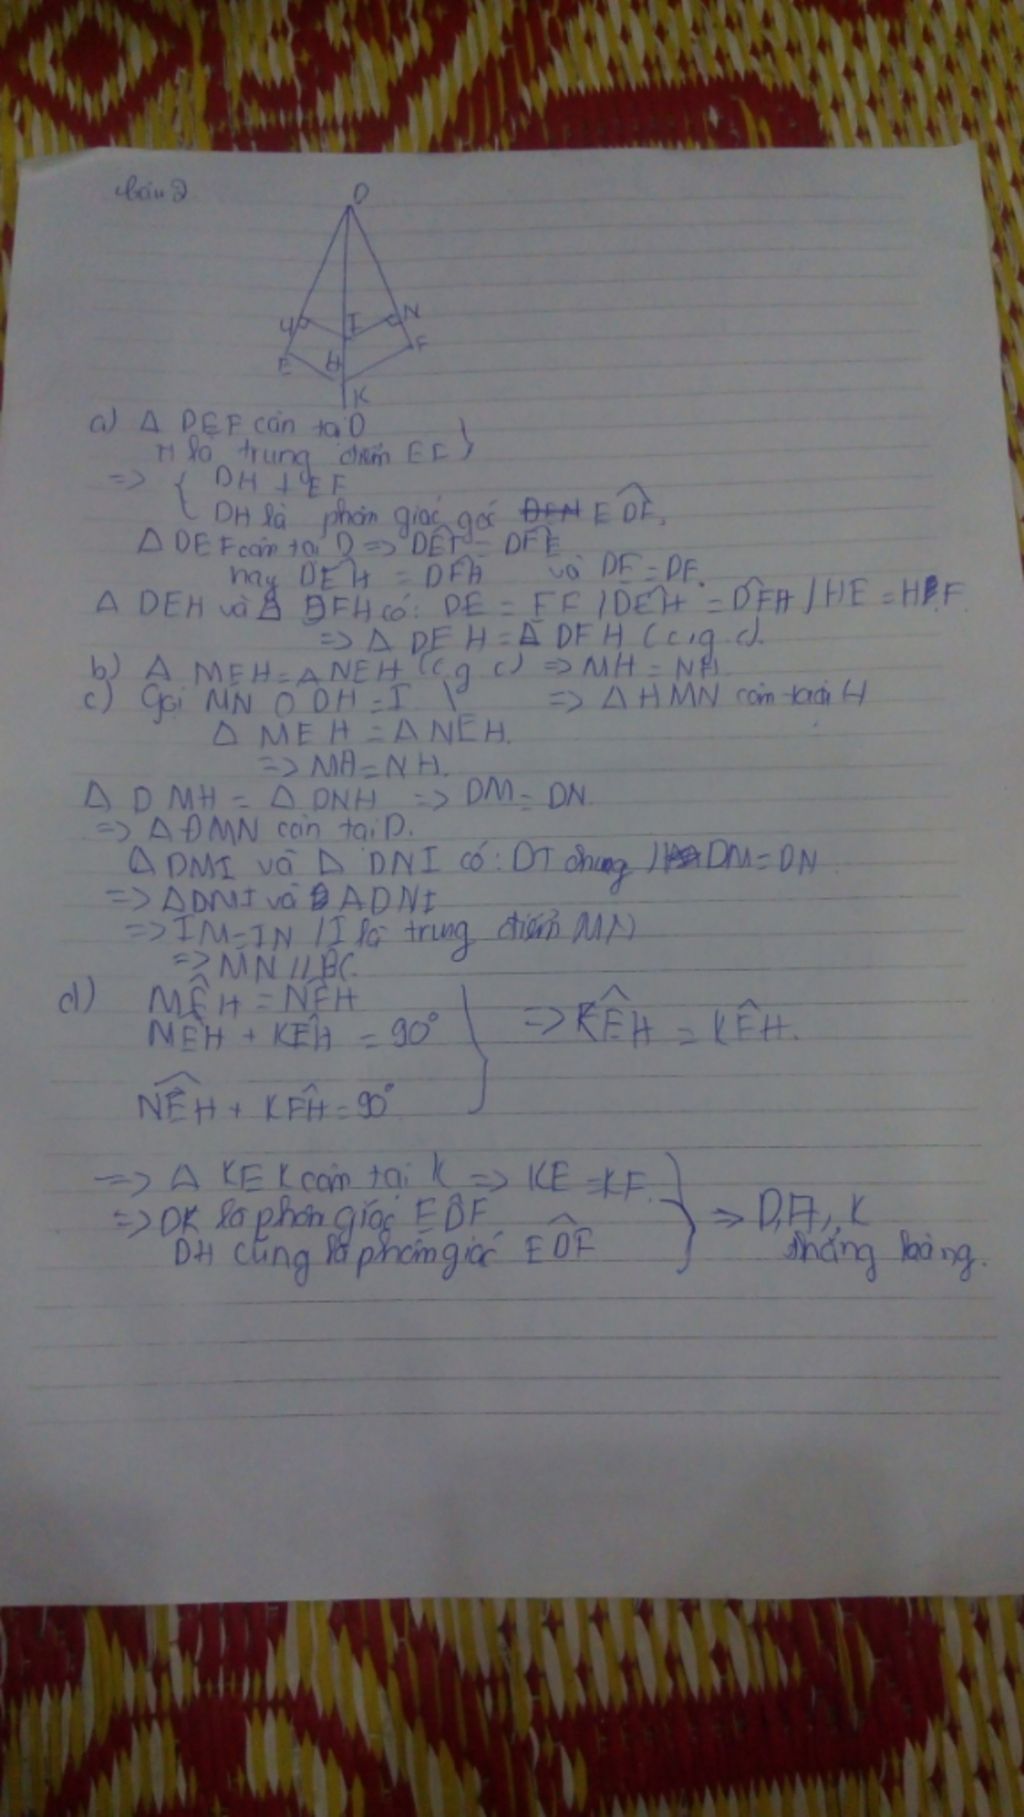 Bài 2
D
M
I
N
E
H
F
K
a) Δ DEF cân tại D
H là trung điểm EF }
=> { DH ⊥ EF
DH là phân giác góc EDF.
Δ DEF cân tại D => DEF = DFE
hay DEH = DFH và DE = DF.
Δ DEH và Δ DFH có: DE = FF / DEH = DFH / HE = HF
=> Δ DEH = Δ DFH (c.g.c).
b) Δ MEH = Δ NEH (c.g.c) => MH = NH.
=> Δ HMN cân tại H
c) Gọi MN ∩ DH = I
Δ MEH = Δ NEH.
=> MH = NH.
Δ DMH = Δ DNH => DM = DN.
=> Δ DMN cân tại D.
Δ DMI và Δ DNI có: DI chung / DM = DN
=> Δ DMI và Δ DNI
=> IM = IN / I là trung điểm MN
=> MN // BC.
d) MEH = NEH
MEH + KEH = 90° } => KEH = KEH.
NEH + KFH = 90°
=> Δ KEK cân tại K => KE = KF.
=> DK là phân giác EDF
DH cũng là phân giác EDF } => D, H, K
thẳng hàng.